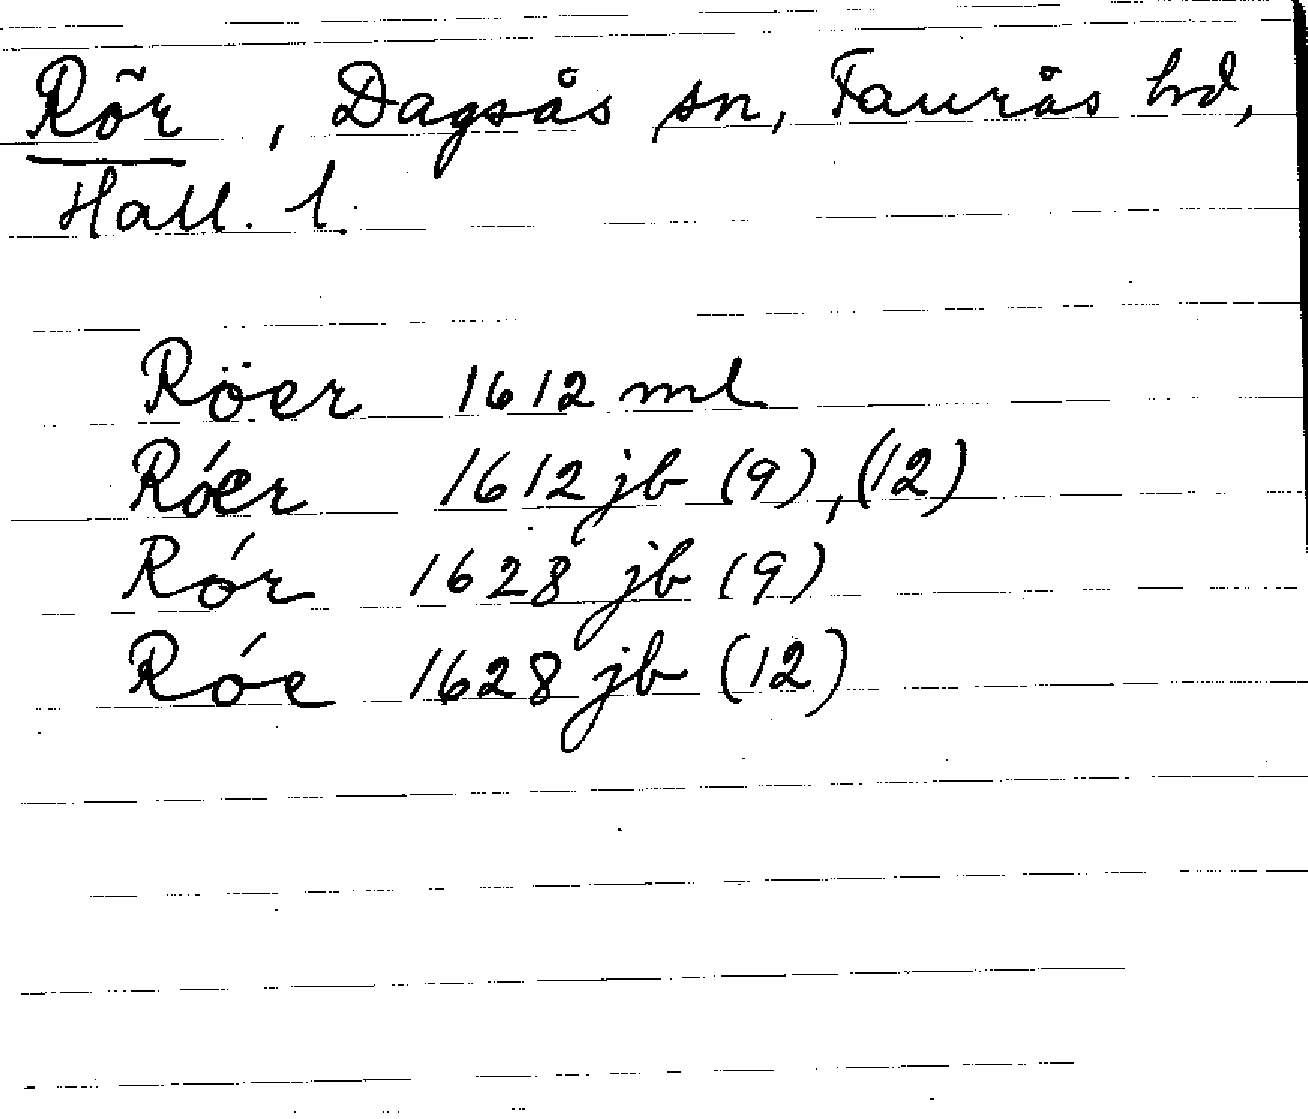 Rõr, Dagsås sn, Faurås hd,
Hall. l.
Röer 1612 ml
Róer 1612 jb (9), (12)
Rór 1628 jb (9)
Róe 1628 jb (12)